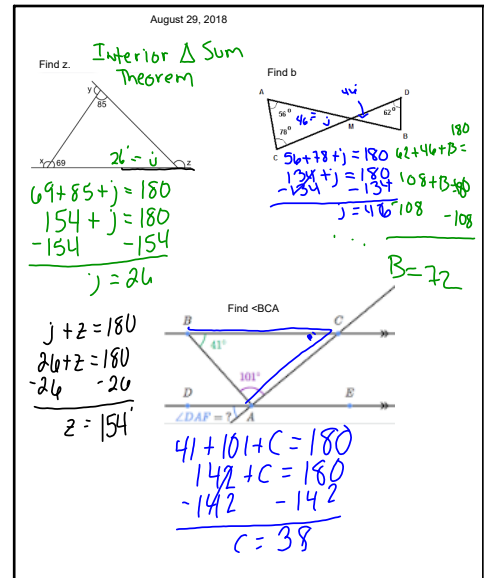 August 29, 2018
Interior Δ Sum
Theorem
Find z.
y
85
x
69
26° = j
z
69+85+j=180
154+j=180
-154 -154
j=26
j+z=180
26+z=180
-26 -26
z=154°
Find b
A
56°
78°
C
46 = j
M
46
D
62°
B
56+78+j=180
134+j=180
-134 -134
j=46
180
62+46+B=
108+B=180
-108 -108
B=72
Find <BCA
B
C
41°
101°
D
A
E
∠DAF = ?
41+101+C=180
142+C=180
-142 -142
C=38